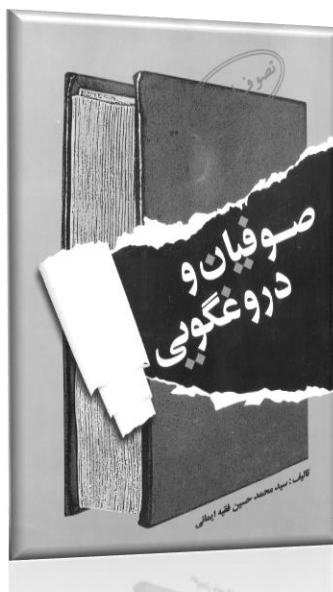 تصوف
صوفیان و
دروغگویی
تالیف: سید محمد حسین فقیه ایمانی